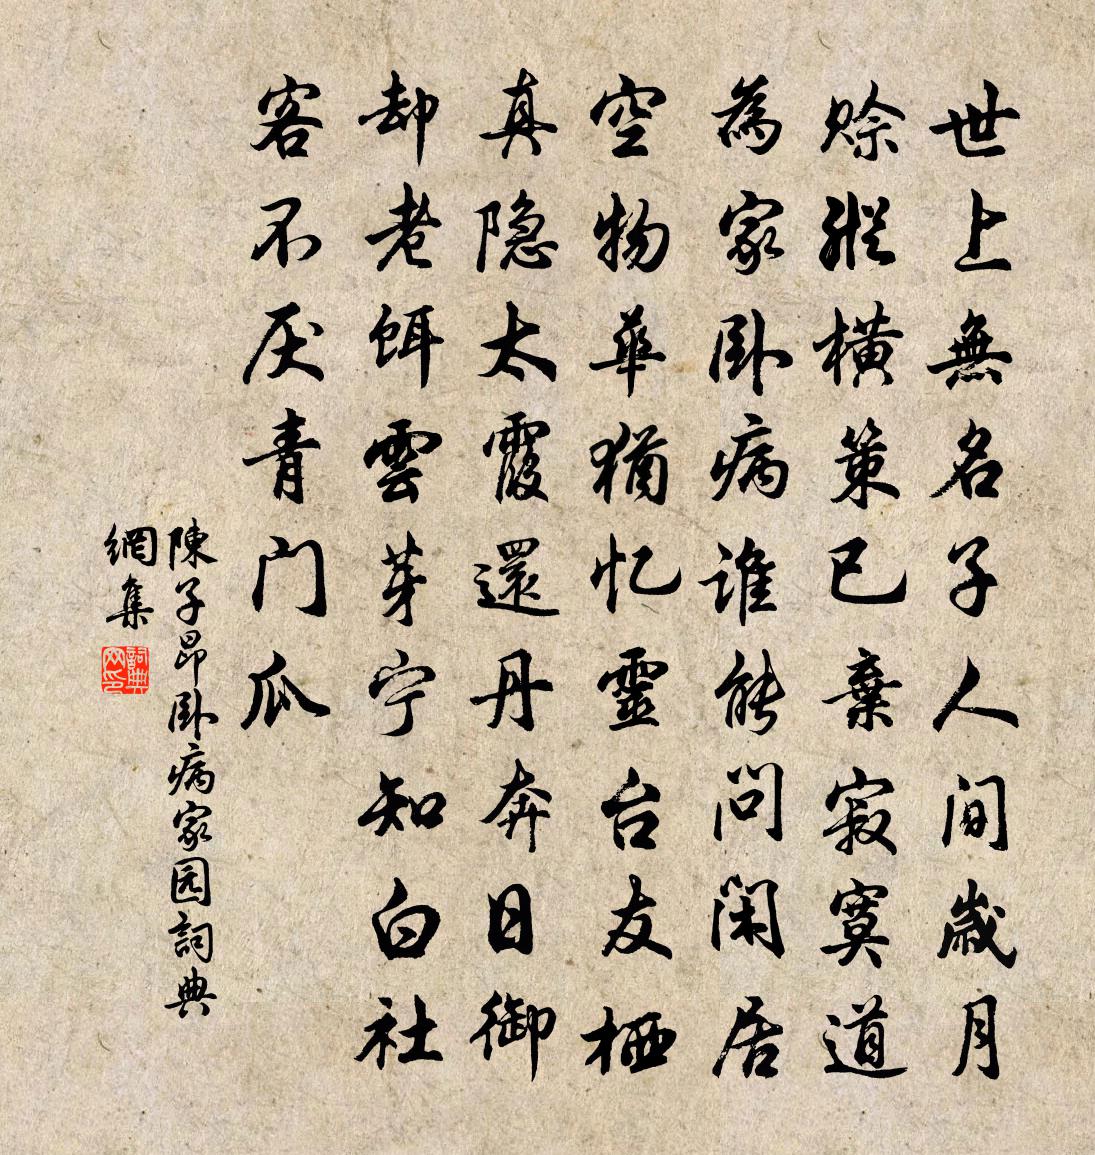 世上無名子人间歲月
赊縱横策已棄寂寞道
為家卧病誰能问闲居
空物華猶忆靈台友栖
真隐太霞還丹奔日御
却老饵雲芽宁知白社
客不厌青门瓜
陳子昂卧病家园詞典
網集
詞典网印